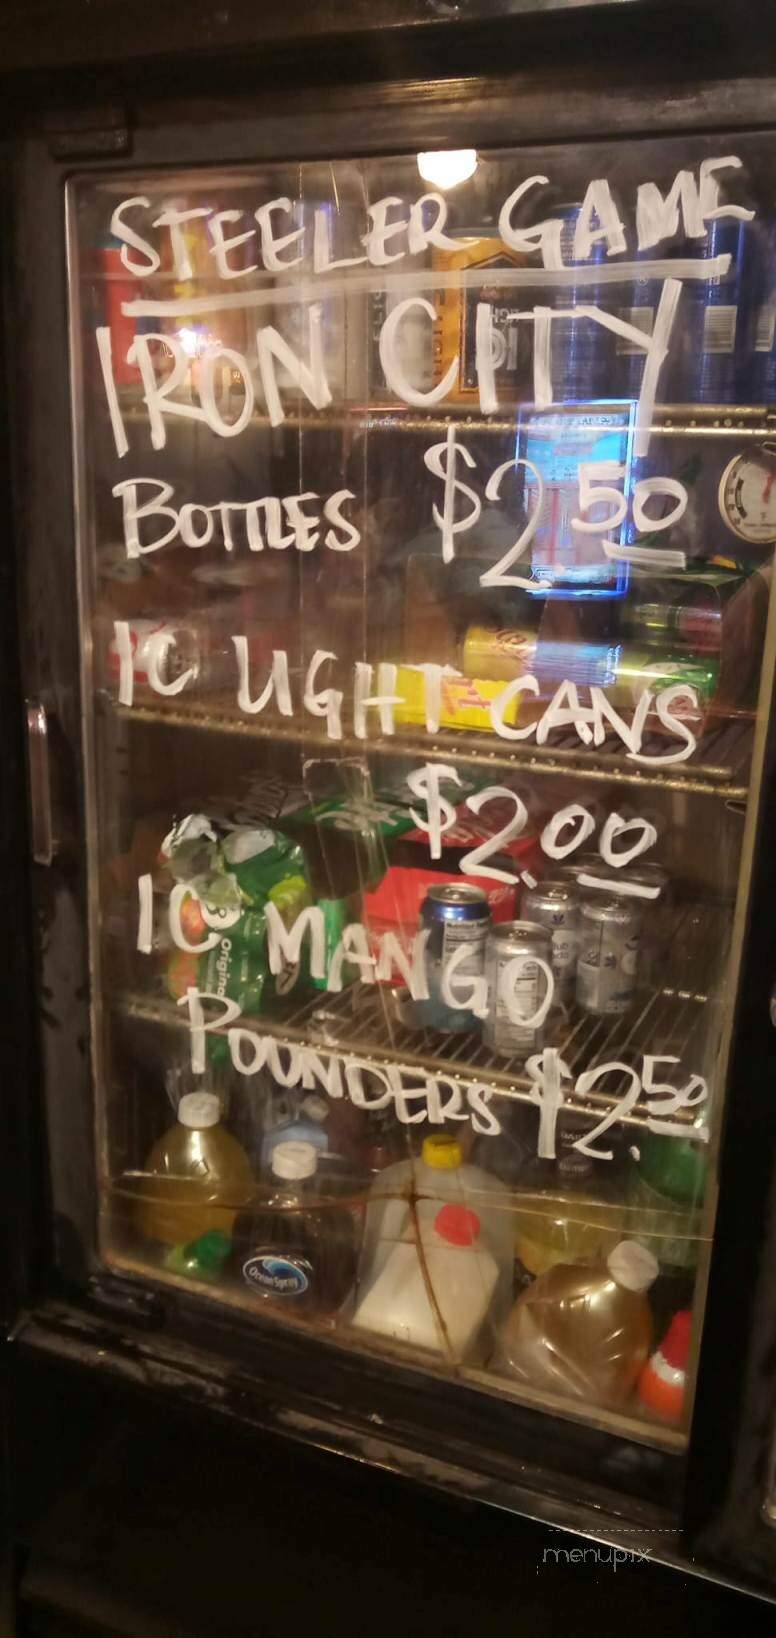 STEELER GAME
IRON CITY
BOTTLES $2.50
IC LIGHT CANS
$2.00
IC MANGO
Original
POUNDERS $2.50
Ocean Spray
menupix